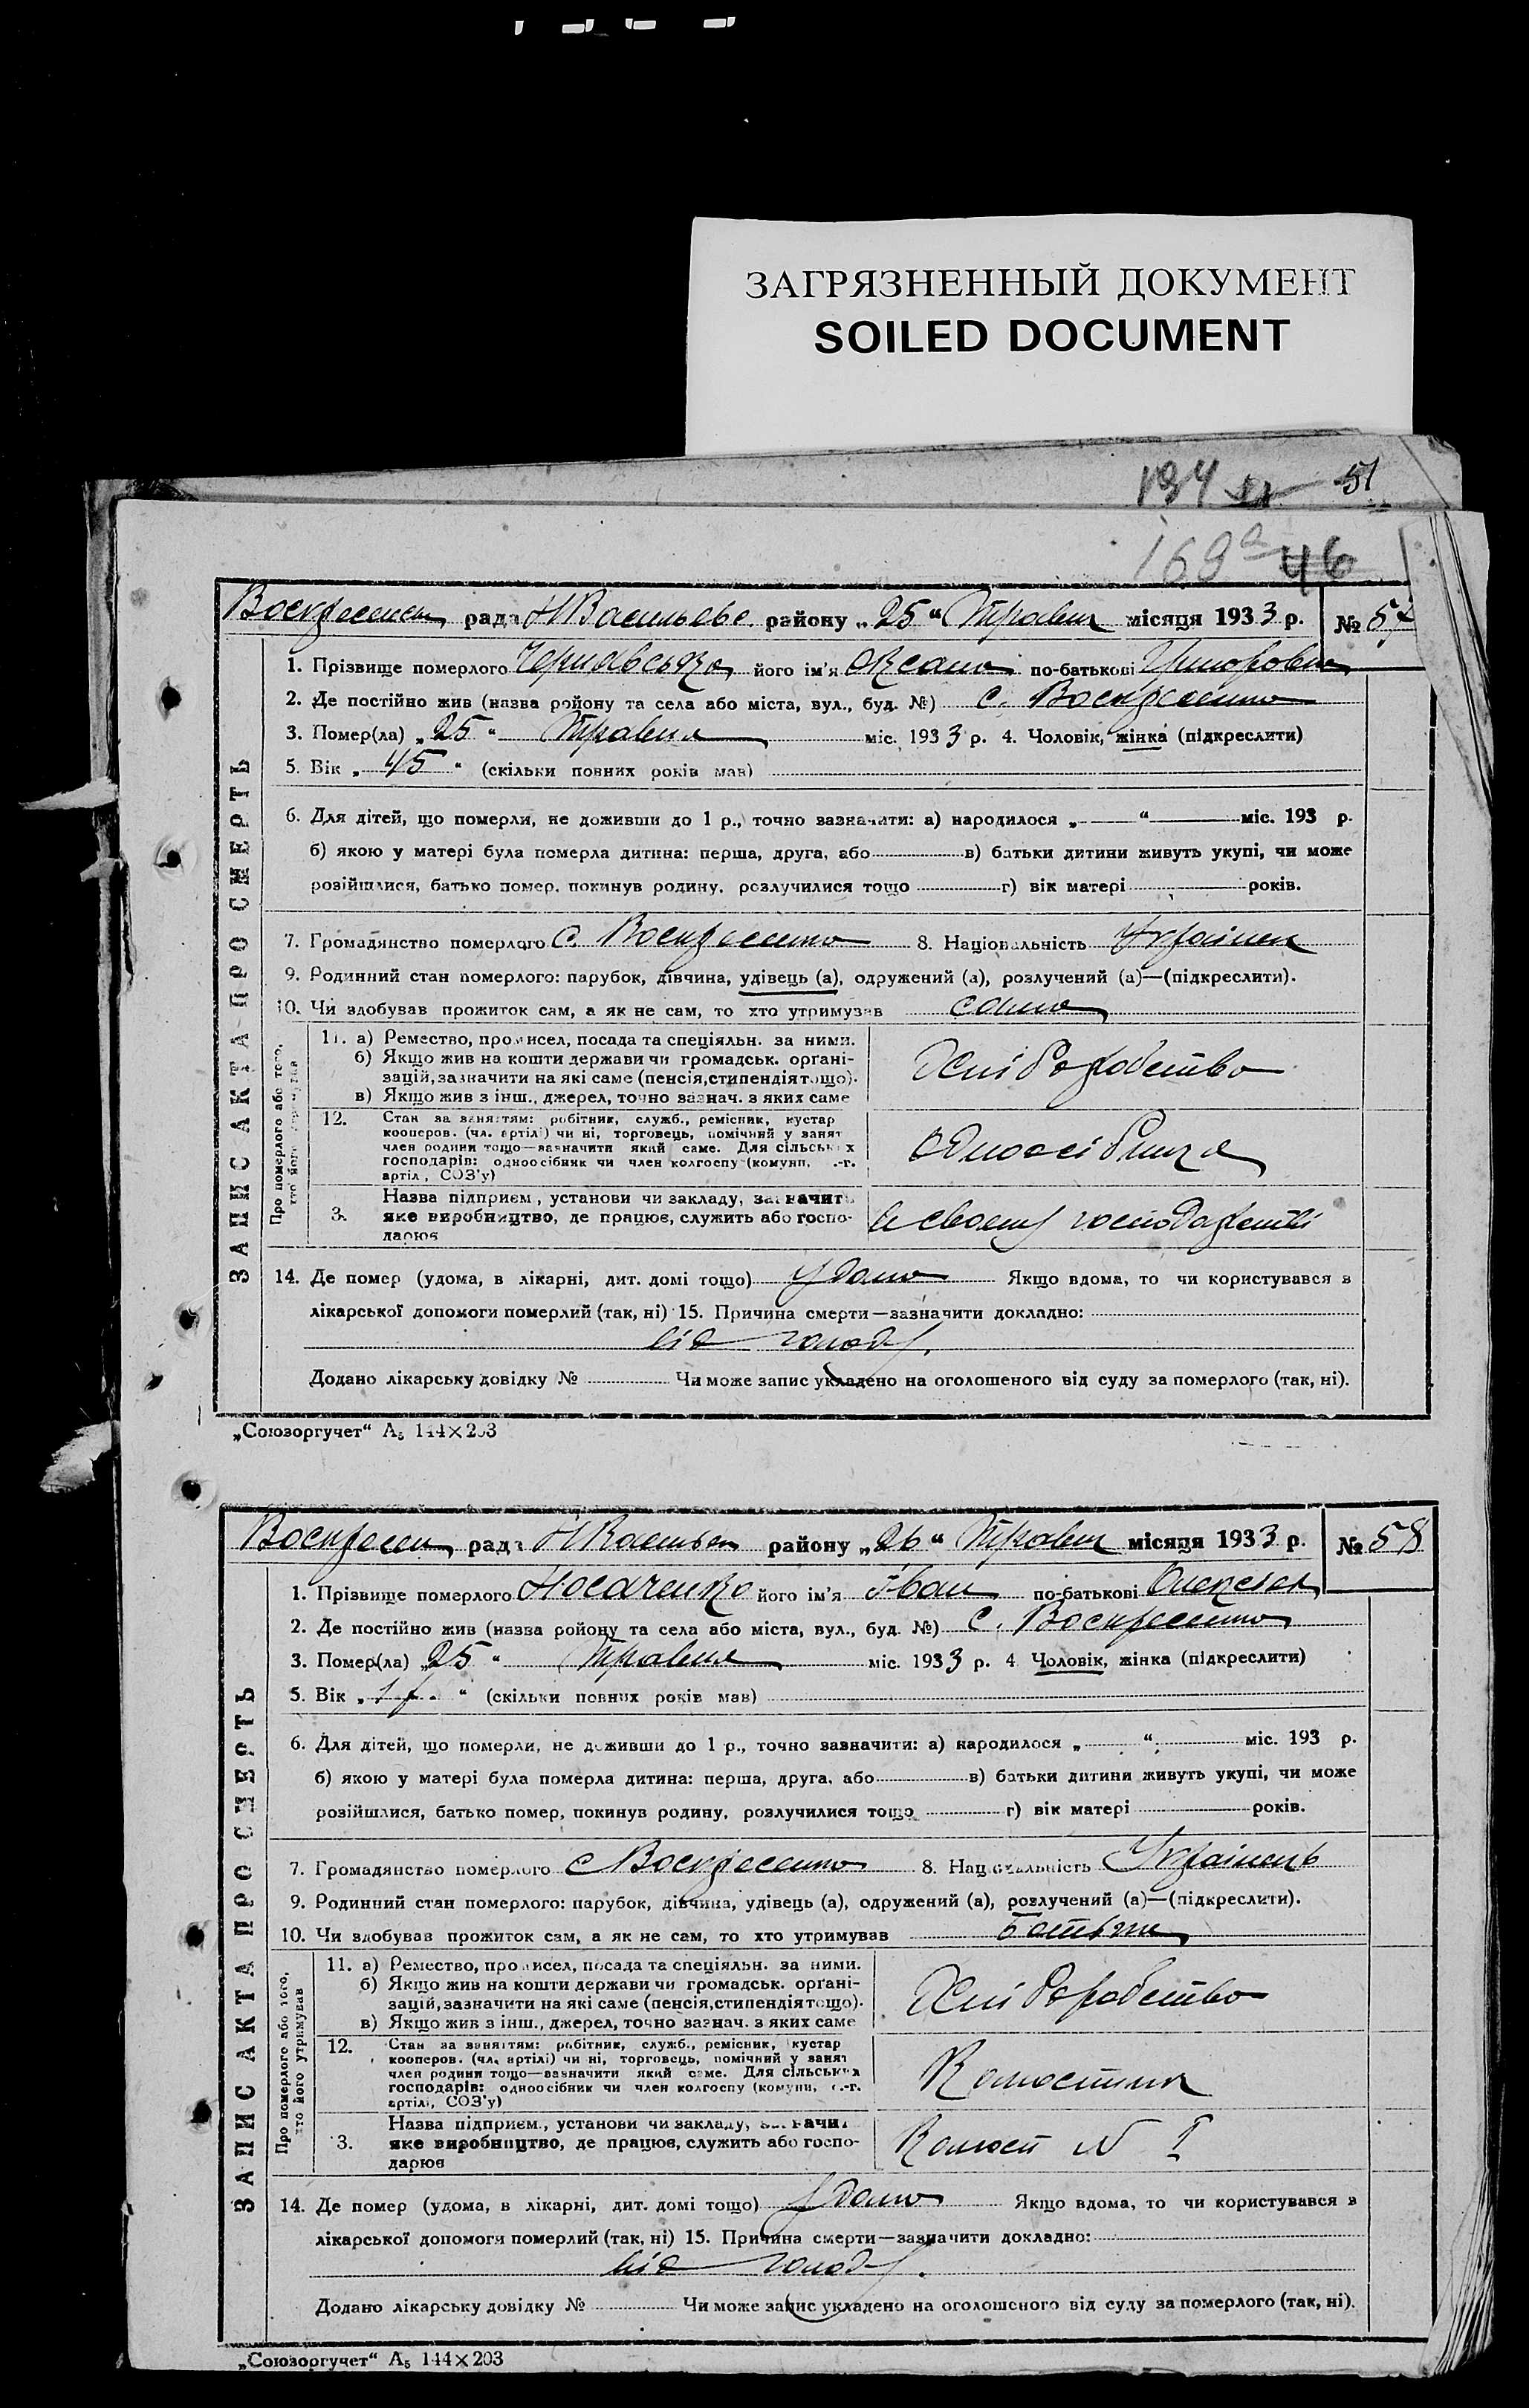 ЗАГРЯЗНЕННЫЙ ДОКУМЕНТ
SOILED DOCUMENT
194 51
169а 46
Воскресенськ рада Н Васильевс. району „25“ Травня місяця 1933 р. № 57
1. Прізвище померлого Чернявська його ім'я Оксана по-батькові
2. Де постійно жив (назва району та села або міста, вул., буд. №) с. Воскресенка
3. Помер(ла) „25“ Травня міс. 1933 р. 4. Чоловік, жінка (підкреслити)
5. Вік „45“ (скільки повних років мав)
6. Для дітей, що померли, не доживши до 1 р., точно зазначити: а) народилося „ “ міс. 193 р.
б) якою у матері була померла дитина: перша, друга, або в) батьки дитини живуть укупі, чи може
розійшлися, батько помер, покинув родину, розлучилися тощо г) вік матері років.
7. Громадянство померлого с. Воскресенка 8. Національність Українка
9. Родинний стан померлого: парубок, дівчина, удівець (а), одружений (а), розлучений (а)—(підкреслити).
10. Чи здобував прожиток сам, а як не сам, то хто утримував сама
ЗАПИС АКТА ПРО СМЕРТЬ
Про померлого або того, хто його утримував
11. а) Ремество, промисел, посада та спеціяльн. за ними.
б) Якщо жив на кошти держави чи громадськ. орґані-
зацій, зазначити на які саме (пенсія, стипендія тощо).
в) Якщо жив з інш., джерел, точно зазнач. з яких саме
Хліборобство
12. Стан за заняттям: робітник, служб., ремісник, кустар
кооперов. (чл. артілі) чи ні, торговець, помічний у занят
член родини тощо—зазначити який саме. Для сільських
господарів: одноосібник чи член колгоспу (комуни, с.-г.
артілі, СОЗ'у)
Одноосібниця
3. Назва підприєм., установи чи закладу, зазначить
яке виробництво, де працює, служить або госпо-
дарює
в своему господарстві
14. Де помер (удома, в лікарні, дит. домі тощо) удома Якщо вдома, то чи користувався з
лікарської допомоги померлий (так, ні) 15. Причина смерти—зазначити докладно:
від голоду.
Додано лікарську довідку № Чи може запис укладено на оголошеного від суду за померлого (так, ні).
„Союзоргучет“ А₅ 144×203
Воскресен рада Н Васильев району „26“ Травня місяця 1933 р. № 58
1. Прізвище померлого Носаченко його ім'я Іван по-батькові Олексієв
2. Де постійно жив (назва району та села або міста, вул., буд. №) с. Воскресенка
3. Помер(ла) „25“ Травня міс. 1933 р. 4 Чоловік, жінка (підкреслити)
5. Вік „1 р.“ (скільки повних років мав)
6. Для дітей, що померли, не доживши до 1 р., точно зазначити: а) народилося „ “ міс. 193 р.
б) якою у матері була померла дитина: перша, друга, або в) батьки дитини живуть укупі, чи може
розійшлися, батько помер, покинув родину, розлучилися тощо г) вік матері років.
7. Громадянство померлого с Воскресенка 8. Національність Українець
9. Родинний стан померлого: парубок, дівчина, удівець (а), одружений (а), розлучений (а)—(підкреслити).
10. Чи здобував прожиток сам, а як не сам, то хто утримував батьки
ЗАПИС АКТА ПРО СМЕРТЬ
Про померлого або того, хто його утримував
11. а) Ремество, промисел, посада та спеціяльн. за ними.
б) Якщо жив на кошти держави чи громадськ. орґані-
зацій, зазначити на які саме (пенсія, стипендія тощо).
в) Якщо жив з інш., джерел, точно зазнач. з яких саме
Хліборобство
12. Стан за заняттям: робітник, служб., ремісник, кустар
кооперов. (чл. артілі) чи ні, торговець, помічний у занят
член родини тощо—зазначити який саме. Для сільських
господарів: одноосібник чи член колгоспу (комуни, с.-г.
артілі, СОЗ'у)
Колгоспник
3. Назва підприєм., установи чи закладу, зазначи
яке виробництво, де працює, служить або госпо-
дарює
Колгосп N 1
14. Де помер (удома, в лікарні, дит. домі тощо) удома Якщо вдома, то чи користувався з
лікарської допомоги померлий (так, ні) 15. Причина смерти—зазначити докладно:
від голоду.
Додано лікарську довідку № Чи може запис укладено на оголошеного від суду за померлого (так, ні).
„Союзоргучет“ А₅ 144×203